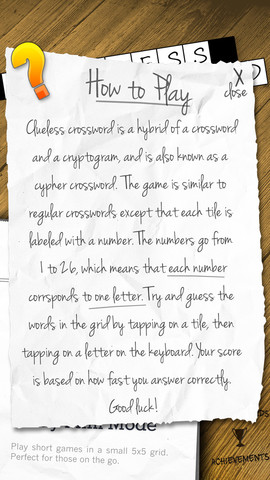 ESS
How to Play
X
close
Clueless crossword is a hybrid of a crossword
and a cryptogram, and is also known as a
cypher crossword. The game is similar to
regular crosswords except that each tile is
labeled with a number. The numbers go from
1 to 26, which means that each number
corrsponds to one letter. Try and guess the
words in the grid by tapping on a tile, then
tapping on a letter on the keyboard. Your score
is based on how fast you answer correctly.
Good luck!
Mode
Play short games in a small 5x5 grid.
Perfect for those on the go.
ACHIEVEMENTS